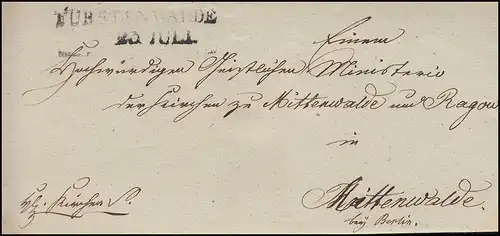 FURSTENWALDE
23 JULI
Einem
Hochwürdigen Geistlichen Ministerio
der Kirchen zu Mittenwalde und Ragow
in
Mittenwalde.
bey Berlin.
Kirchen S.